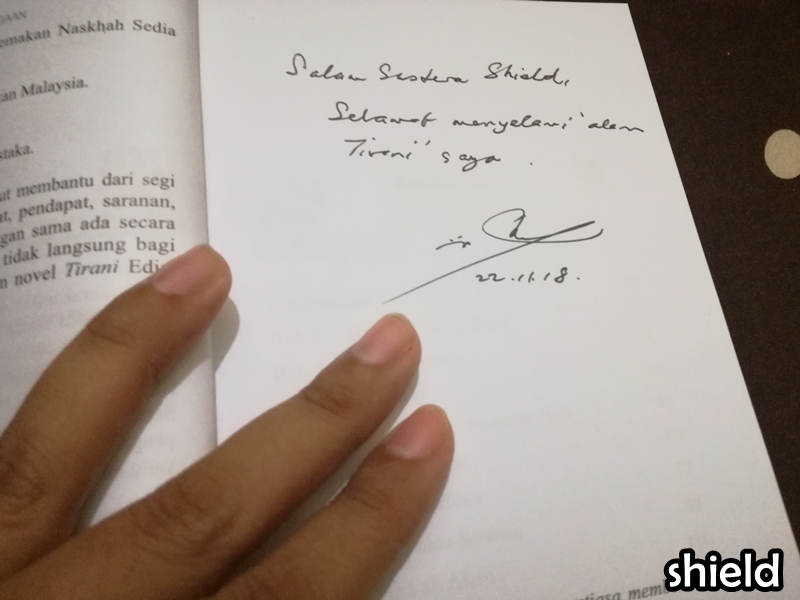 emakan Naskhah Sedia
an Malaysia.
staka.
ut membantu dari segi
at, pendapat, saranan,
gan sama ada secara
tidak langsung bagi
n novel Tirani Edi
Salam Sastera Shield,
Selamat menyelami 'alam
Tirani" saya.
22.11.18.
shield